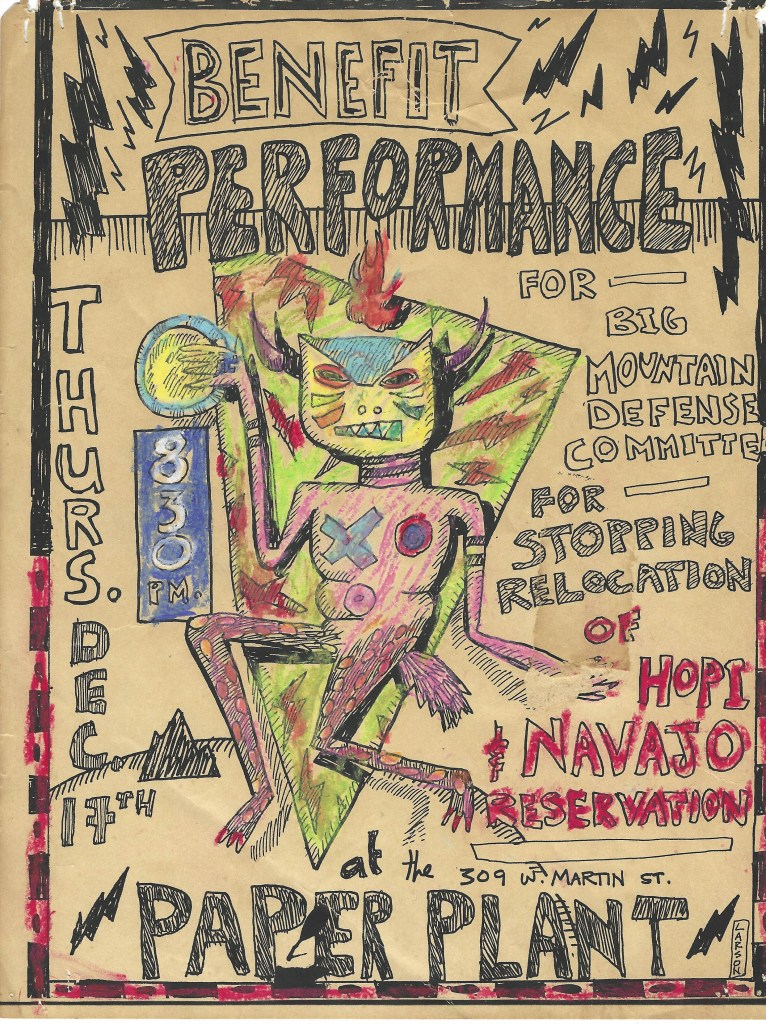 BENEFIT
PERFORMANCE
FOR
BIG
MOUNTAIN
DEFENSE
COMMITTE
FOR
STOPPING
RELOCATION
OF
HOPI
& NAVAJO
RESERVATION
THURS. DEC. 17TH
830
PM.
at the 309 W. MARTIN ST.
PAPER PLANT
LARSON